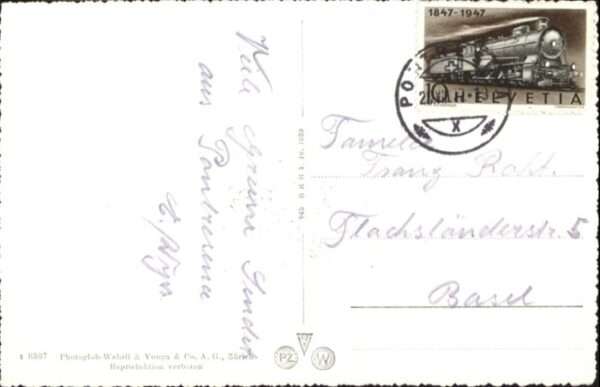 1847-1947
10 HELVETIA
PO
X
Viele Grüsse
aus Pontresina
Familie
Franz Roht.
Flachsländerstr. 5
Basel
Photoglob-Wehrli & Vouga & Co, A. G., Zürich
Reproduktion verboten
PZ W